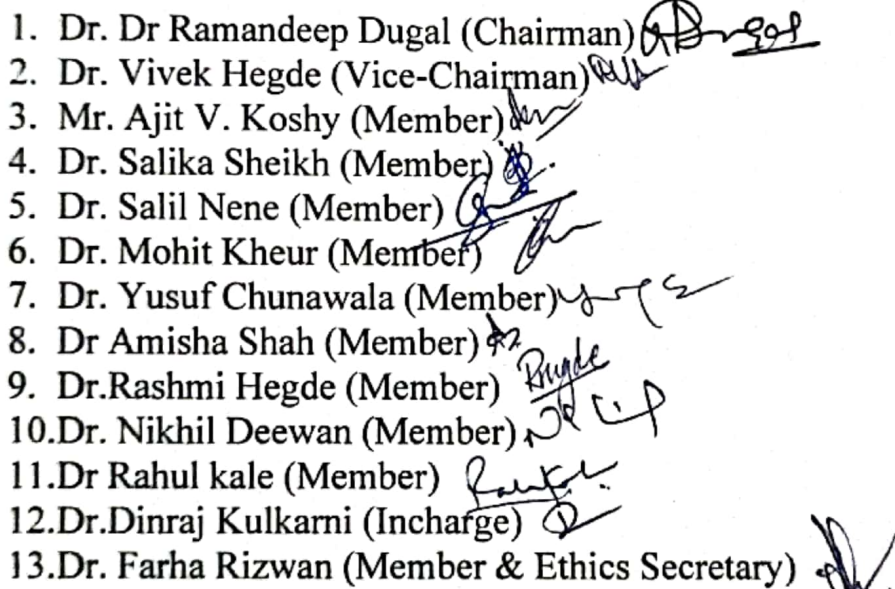 1. Dr. Dr Ramandeep Dugal (Chairman)
2. Dr. Vivek Hegde (Vice-Chairman)
3. Mr. Ajit V. Koshy (Member)
4. Dr. Salika Sheikh (Member)
5. Dr. Salil Nene (Member)
6. Dr. Mohit Kheur (Member)
7. Dr. Yusuf Chunawala (Member)
8. Dr Amisha Shah (Member)
9. Dr.Rashmi Hegde (Member)
10.Dr. Nikhil Deewan (Member)
11.Dr Rahul kale (Member)
12.Dr.Dinraj Kulkarni (Incharge)
13.Dr. Farha Rizwan (Member & Ethics Secretary)